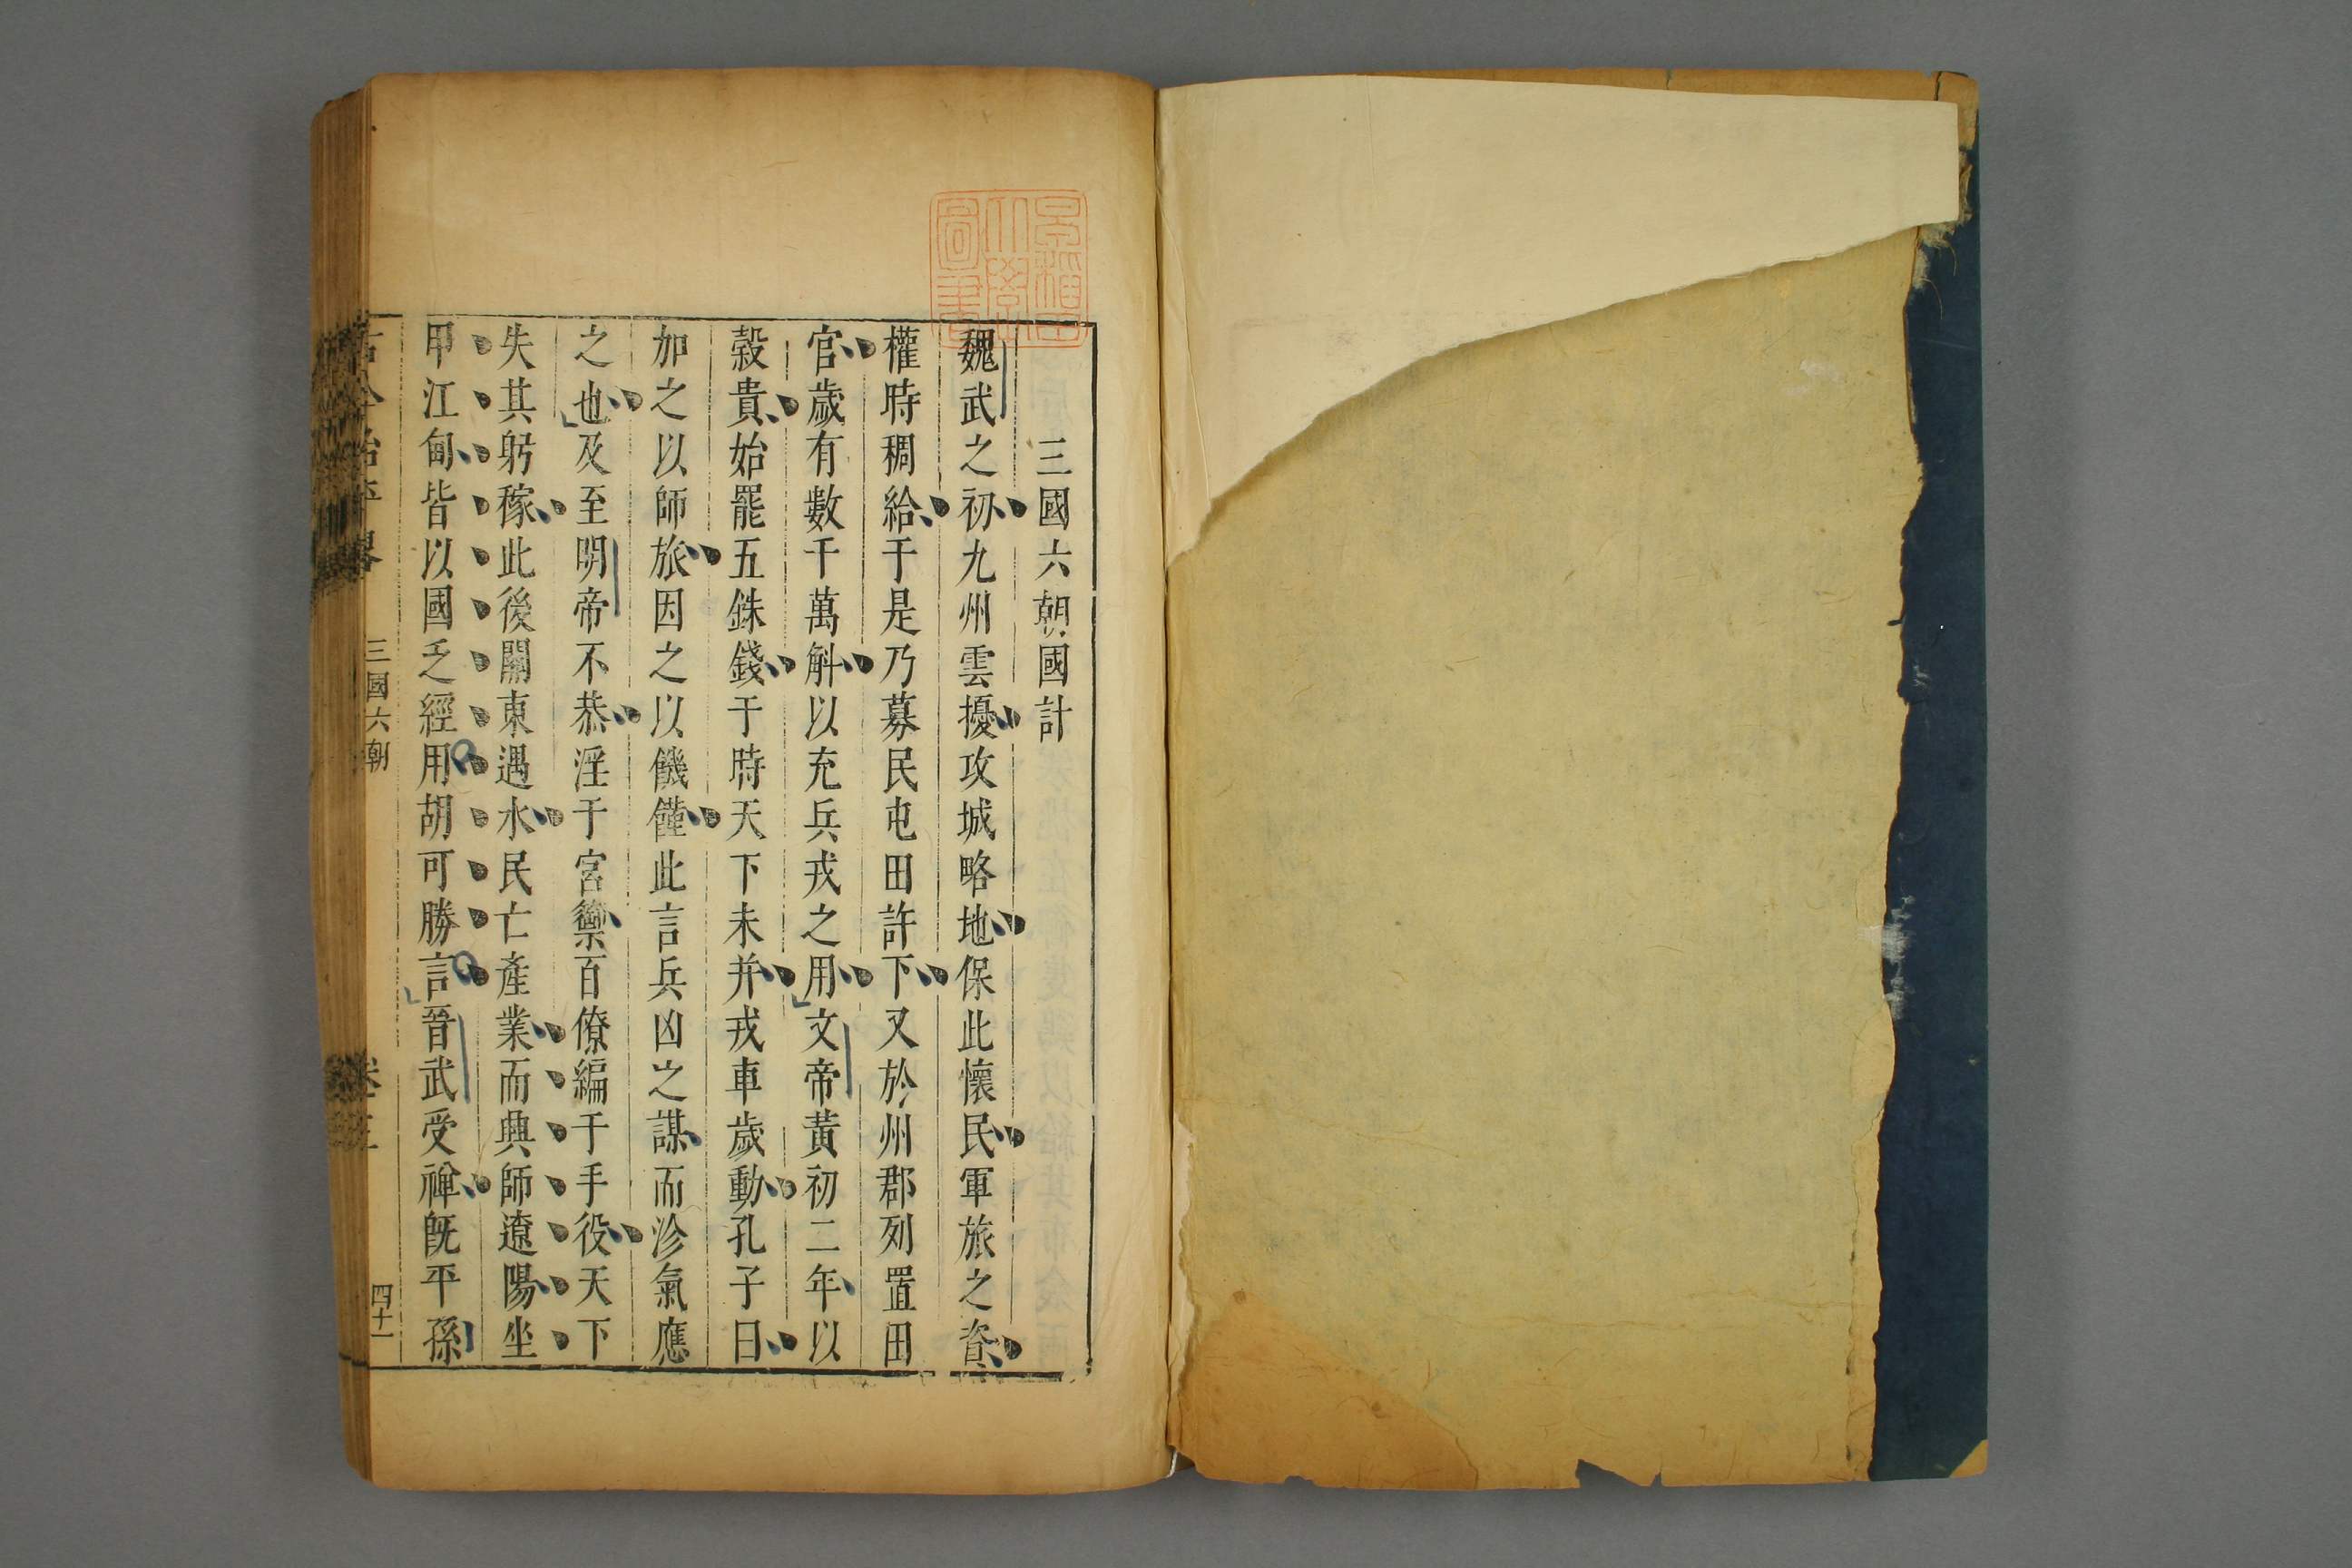 三國六朝國計
魏武之初九州雲擾攻城略地保此懷民軍旅之資
權時稠給于是乃募民屯田許下又於州郡列置田
官歲有數千萬斛以充兵戎之用文帝黃初二年以
穀貴始罷五銖錢于時天下未并戎車歲動孔子曰
加之以師旅因之以饑饉此言兵凶之謀而沴氣應
之也及至明帝不恭淫于宮籞百僚編于手役天下
失其躬稼此後關東遇水民亡產業而興師遼陽坐
甲江甸皆以國乏經用胡可勝言晉武受禪旣平孫
三國六朝
卷三
四十一
早稻田
大學
圖書